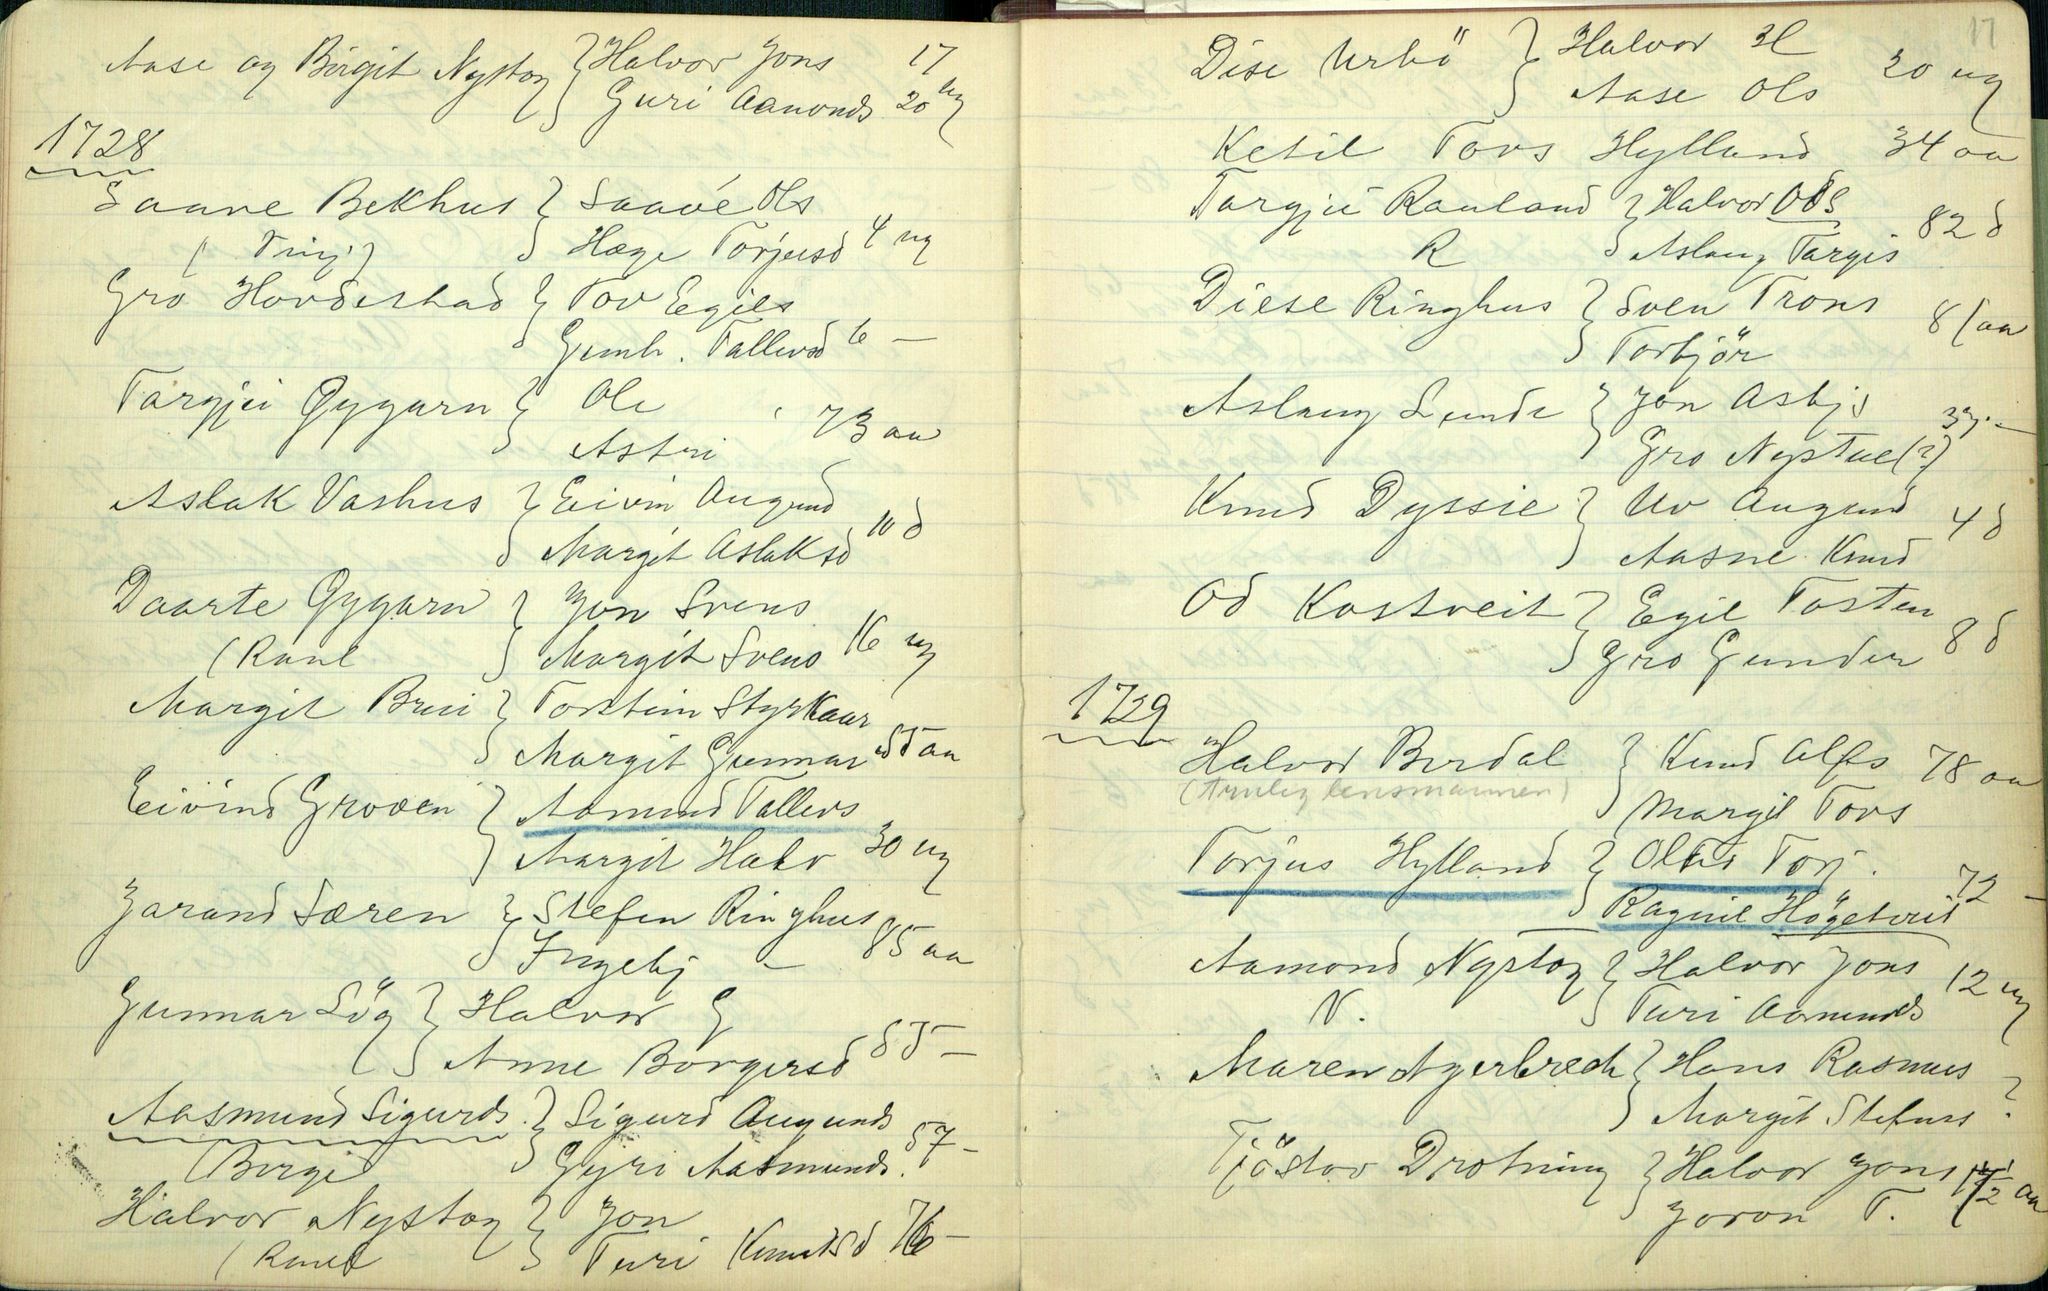 Aase og Birgit Nystog } Halvor Jons 17
Guri Aamonds 20 ug
1728
Saave Bekhus } Saavé Ols
(Vinj) Hæge Torjusd 4 ug
Gro Hovdestad } Tov Egils
Gunh. Tallevsd 6 —
Targjei Gygarn } Ole 73 aa
Astri
Aslak Vashus } Eivin Augund
Margit Aslaksd 10 d
Daarte Gygarn } Jon Svens
(Raul Margit Svens 16 ug
Margit Brui } Torstein Styrkaar
Margit Gunnar 55 aa
Eivind Groven } Aamund Tallevs
Margit Halv 30 ug
Jarand Særen } Stefen Ringhus
Ingebj — 85 aa
Gunnar Lög } Halvor G
Anne Borgersd 85 —
Aasmund Sigurds. } Sigurd Augunds
(Berge Gyri Aasmunds. 57 —
Halvor Nystog } Jon
(Raul Turi Knutsd 76 —
17
Dise Urbö } Halvor H
Aase Ols 20 ug
Ketil Tovs Hylland 34 aa
Targjei Rauland } Halvor Ols 82 d
R Aslaug Targjs
Diese Ringhus } Sven Trons 81 aa
Torbjör
Aslaug Lunde } Jon Asbjs 33. —
Gro Nystue (?)
Knud Dyssie } Uv Augund 4 d
Aasne Knud
Od Kostveit } Egil Tosten
Gro Gunder 8 d
1729
Halvor Berdal } Knud Alfs 78 aa
(Truleg lensmannen) Margit Tovs
Torjus Hylland } Olav Torj. 72 —
Ragnil Högetveit
Aamond Nystog } Halvor Jons 12 ug
N. Turi Aamunds
Maren Agerbrech } Hans Rasmus ?
Margit Stefens
Tjöstov Drotning } Halvor Jons 1 1/2 aa
Joron T.